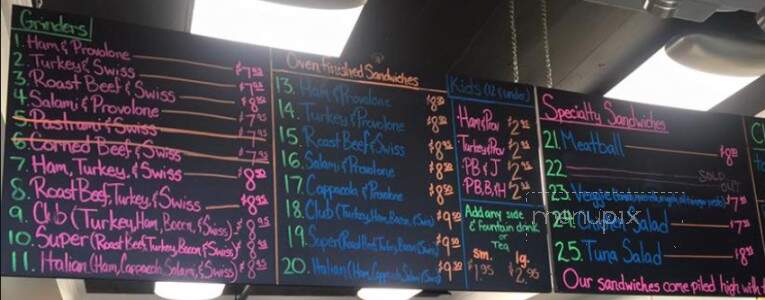 Grinders
1. Ham & Provolone $7.95
2. Turkey & Swiss $7.95
3. Roast Beef & Swiss $8.50
4. Salami & Provolone $7.95
5. Pastrami & Swiss $7.95
6. Corned Beef & Swiss $7.95
7. Ham, Turkey, & Swiss $8.50
8. Roast Beef, Turkey, & Swiss $8.50
9. Club (Turkey, Ham, Bacon, & Swiss) $8.95
10. Super (Roast Beef, Turkey, Bacon, & Swiss) $8.95
11. Italian (Ham, Capacola, Salami, & Swiss) $8.95
Oven Finished Sandwiches
13. Ham & Provolone $8.50
14. Turkey & Provolone $8.50
15. Roast Beef & Swiss
16. Salami & Provolone $8.50
17. Cappacola & Provolone $8.50
18. Club (Turkey, Ham, Bacon, & Swiss)
19. Super (Roast Beef, Turkey, Bacon & Swiss)
20. Italian (Ham, Cappacola, Salami & Swiss)
Kids (12 & under)
• Ham & Prov
• Turkey & Prov
• PB & J
• PB, B, H
Add any side
& fountain drink
Tea
sm. lg.
$1.95 $2.95
Specialty Sandwiches
21. Meatball
22. SOLD OUT
23. Veggie
24. Chicken Salad
25. Tuna Salad
Our sandwiches come piled high with
menupix